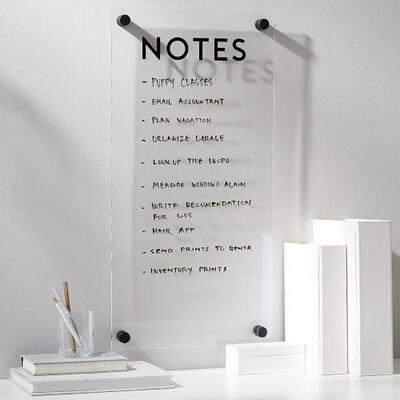 NOTES
- PUPPY CLASSES
- EMAIL ACCOUNTANT
- PLAN VACATION
- ORGANIZE GARAGE
- LOOK UP TILE INSPO
- MEASURE WINDOWS AGAIN
- WRITE RECOMENDATION
FOR LUS
- HAIR APP
- SEND PRINTS TO DENTA
- INVENTORY PRINTS